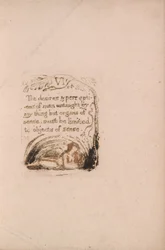 VI
The desires & percepti-
-ons of man untaught by
any thing but organs of
sense, must be limited
to objects of sense.